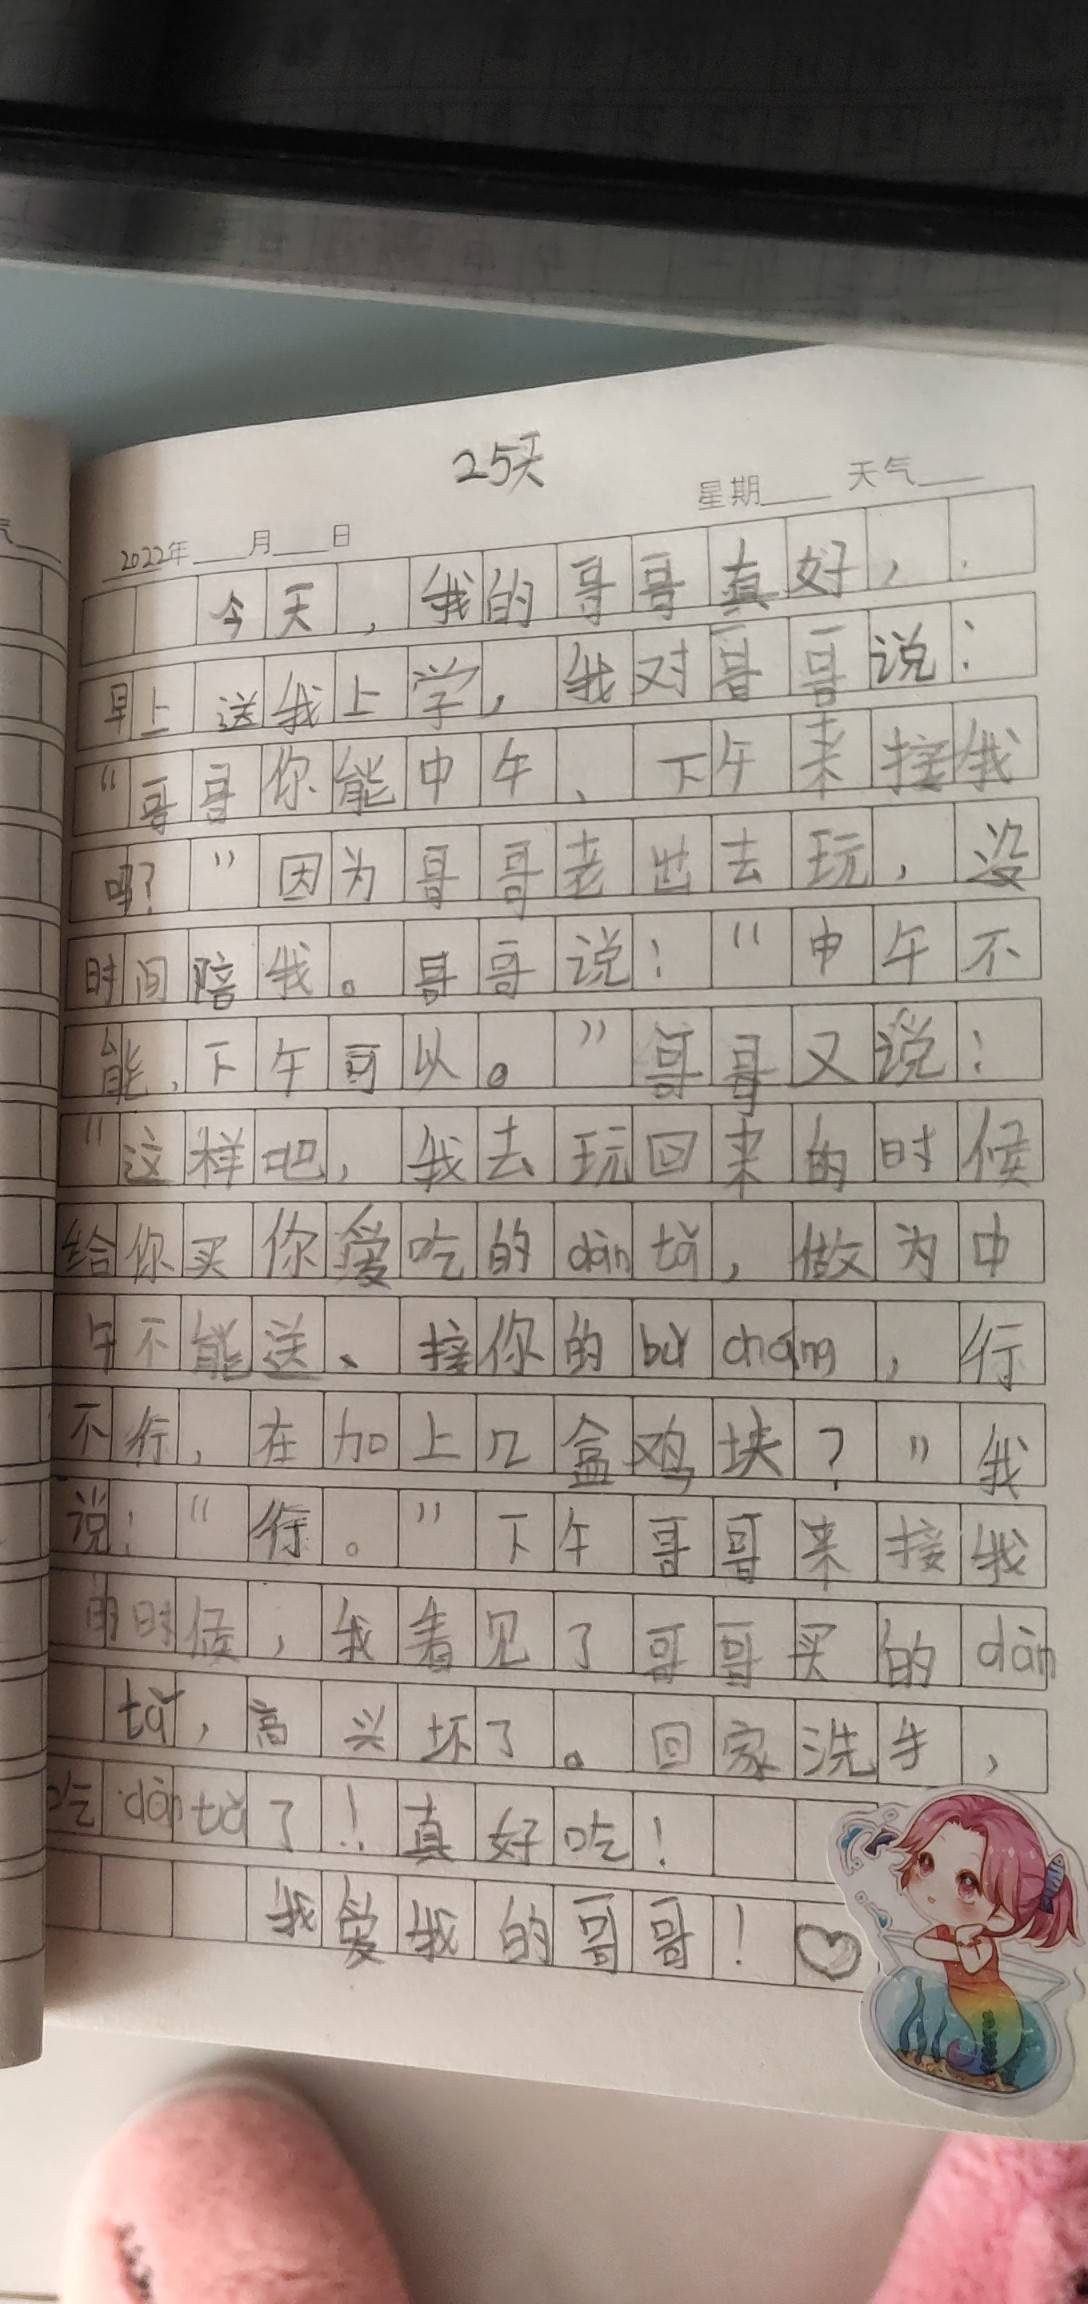 25天
2022年____月____日 星期____ 天气____
今天，我的哥哥真好，
早上送我上学，我对哥哥说：
“哥哥你能中午、下午来接我
吗？”因为哥哥老出去玩，没
时间陪我。哥哥说：“中午不
能，下午可以。”哥哥又说：
“这样吧，我去玩回来的时候
给你买你爱吃的dàn tǎ，做为中
午不能送、接你的bǔ cháng，行
不行，在加上几盒鸡块？”我
说：“行。”下午哥哥来接我
的时候，我看见了哥哥买的dàn
tǎ，高兴坏了。回家洗手，
吃dàn tǎ了！真好吃！
我爱我的哥哥！